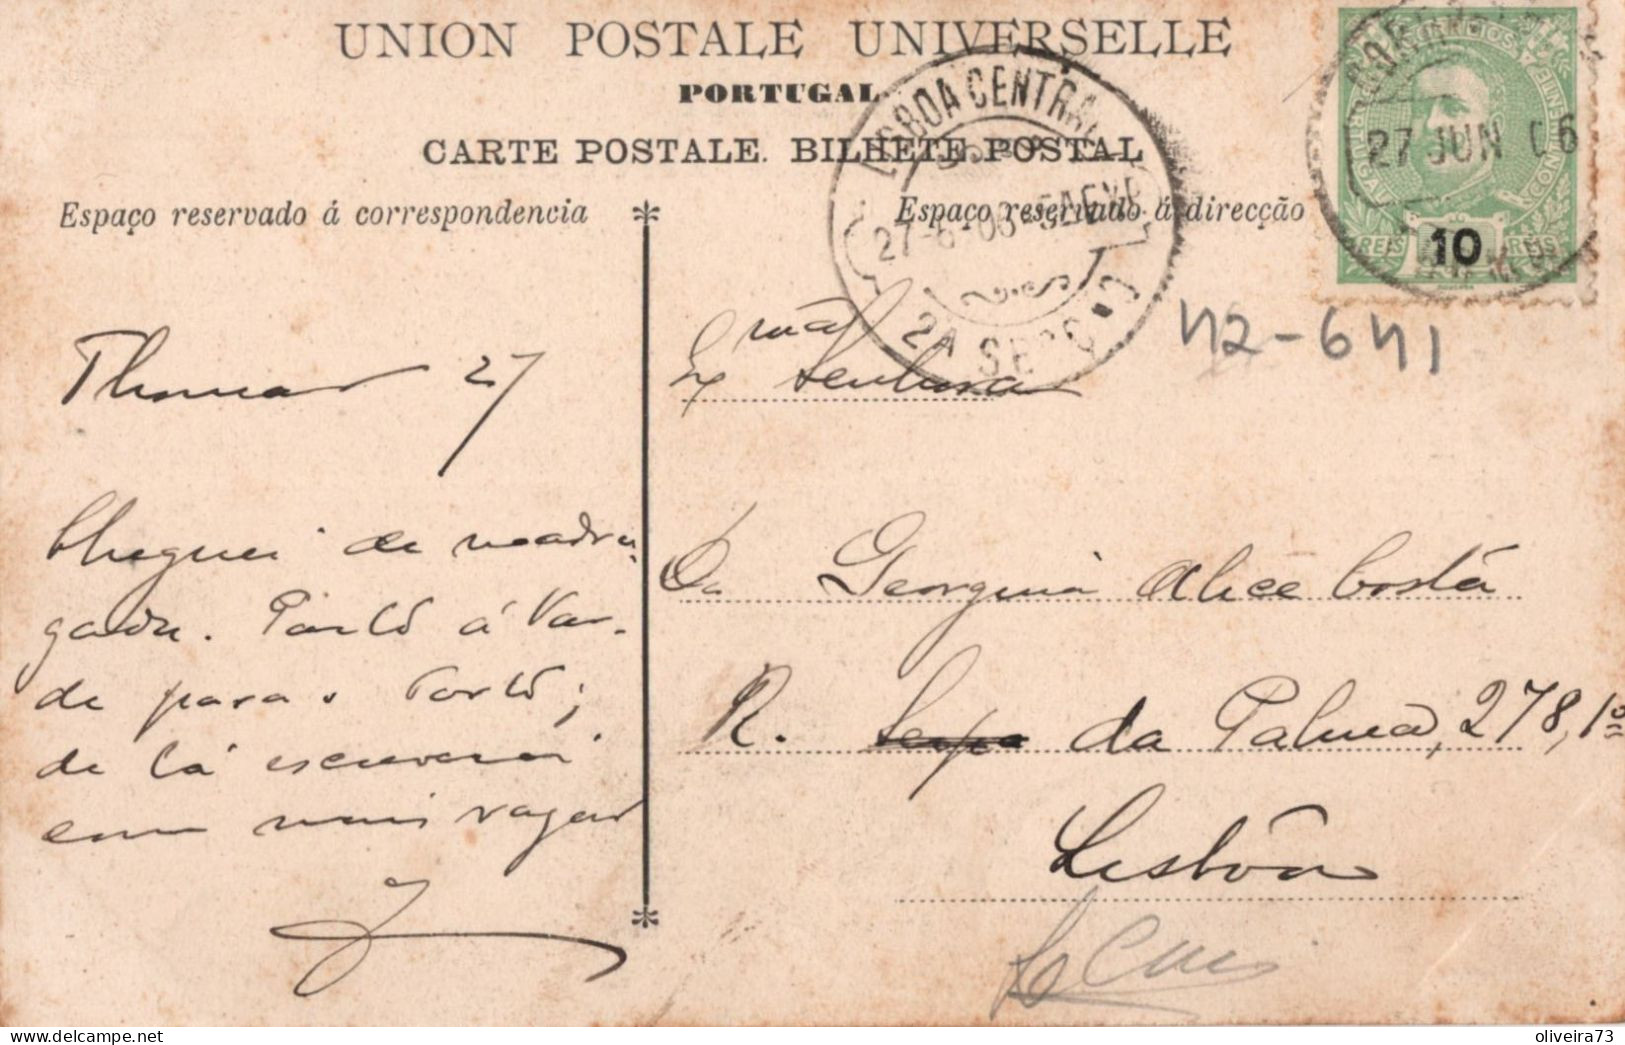 UNION POSTALE UNIVERSELLE
PORTUGAL
CARTE POSTALE. BILHETE POSTAL
Espaço reservado á correspondencia
Espaço reservado á direcção
LISBOA CENTRAL
27-6-06
2A SECÇ
CORREIOS
27 JUN 06
CONTINENTE
REIS 10 REIS
42-641
Thomar 27
Cheguei de madru-
gada. Parto á tar-
de para o Porto;
de lá escreverei
com mais vagar
Exma Senhora
Da Georgina Alice Costa
R. da Palma, 278, 1º
Lisbôa
oliveira73